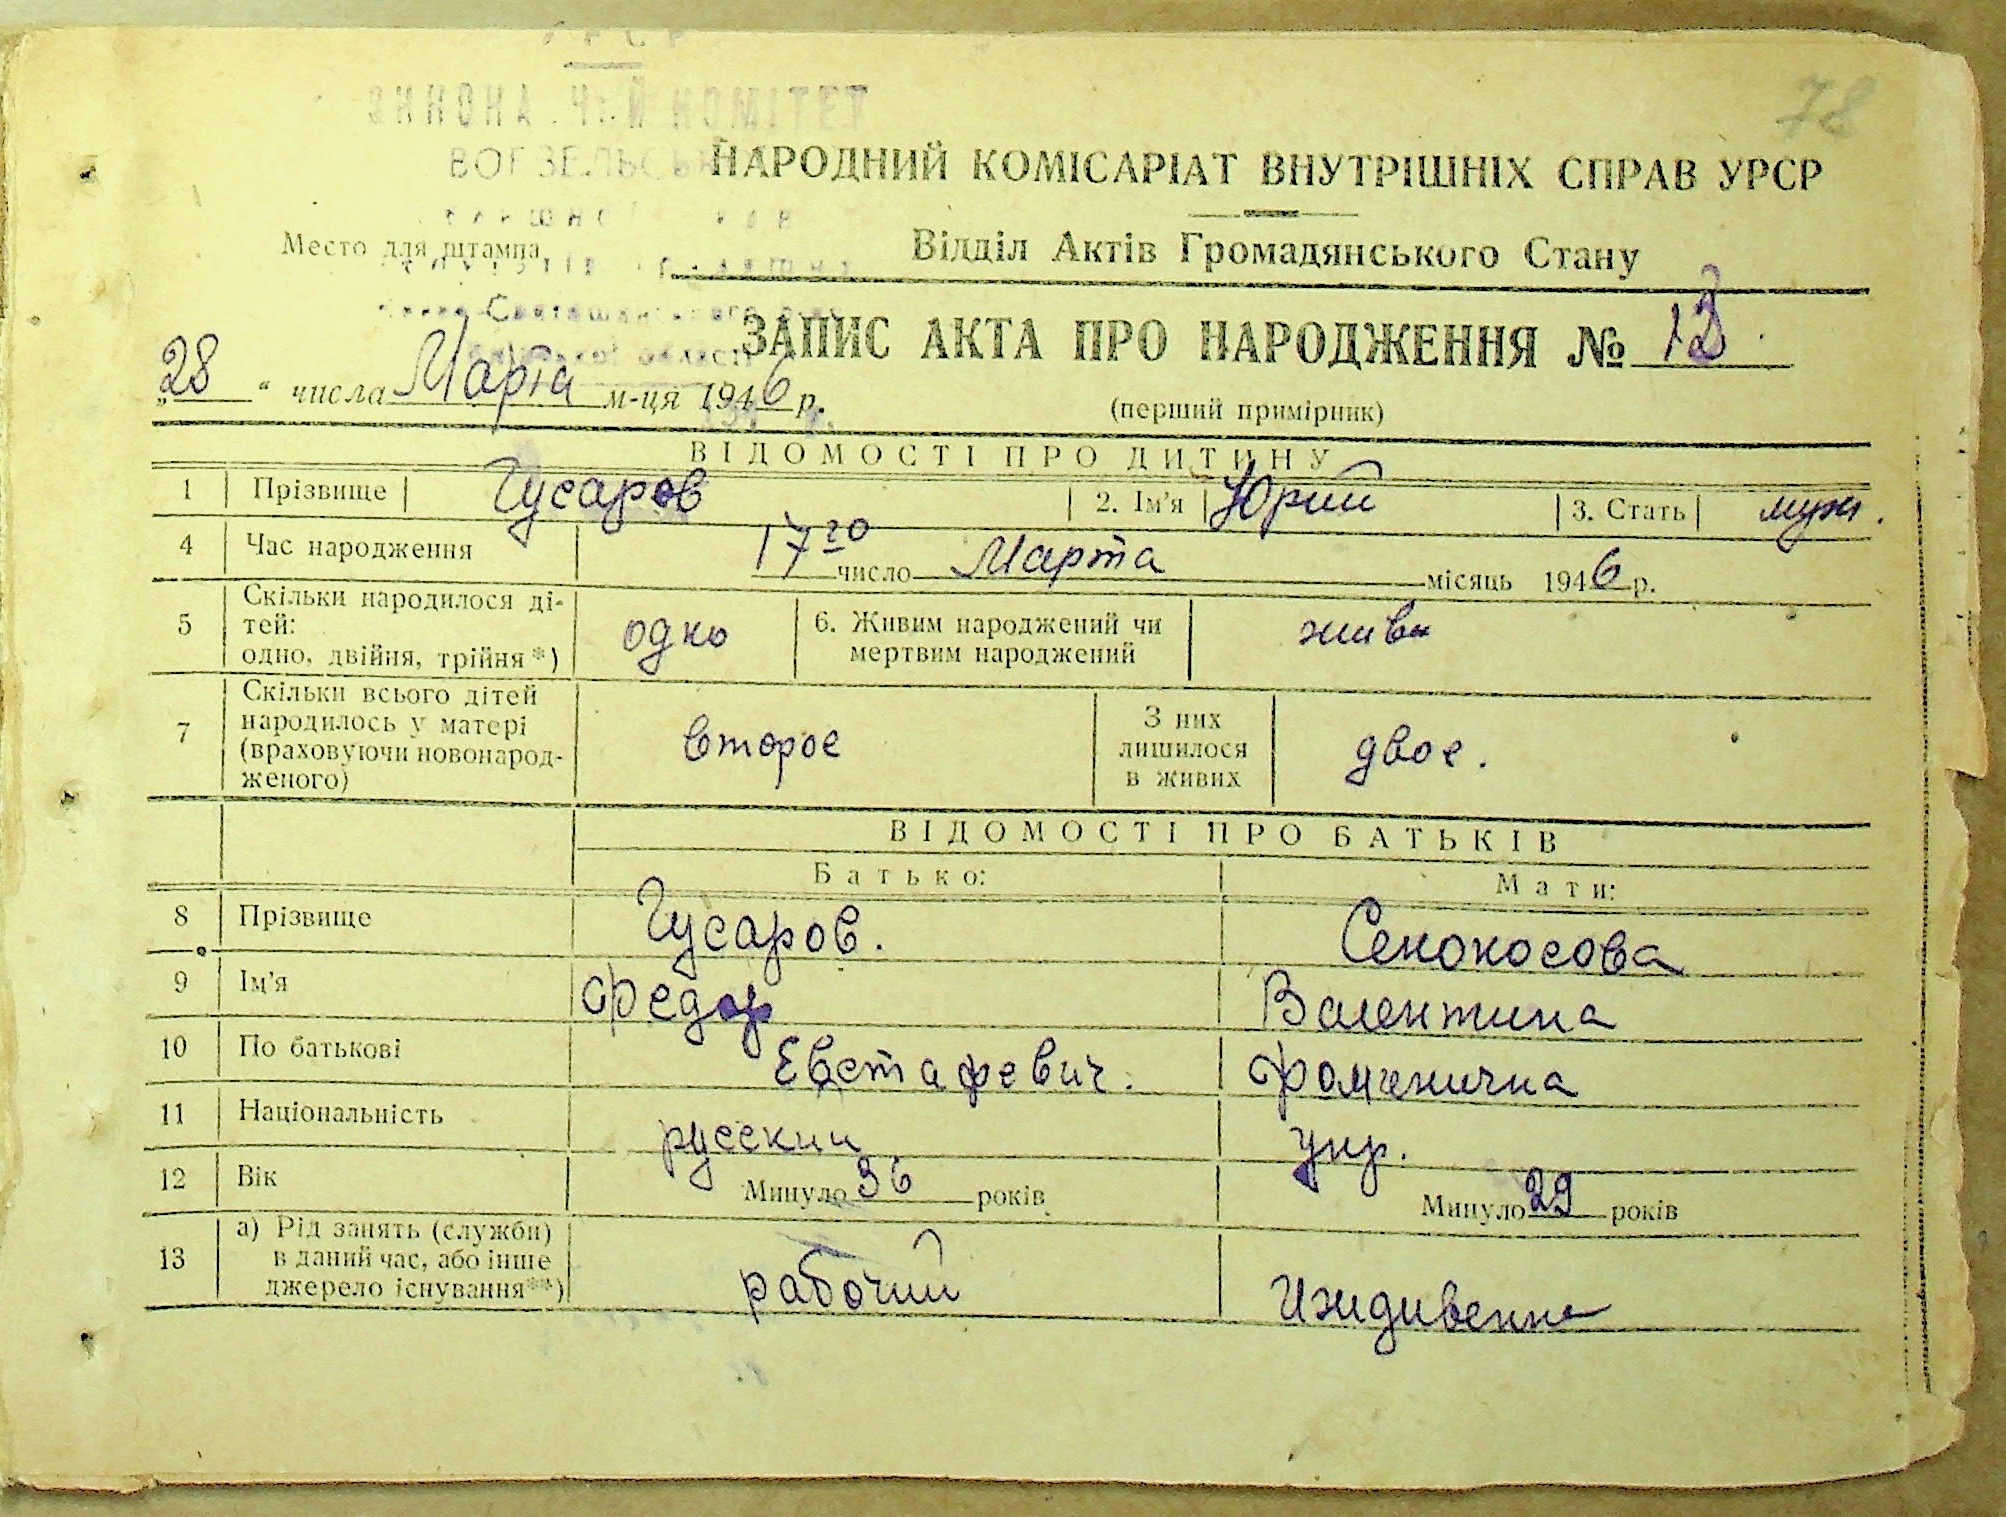 78
КОМІТЕТ
НАРОДНИЙ КОМІСАРІАТ ВНУТРІШНІХ СПРАВ УРСР
Место для штампа
Відділ Актів Громадянського Стану
ЗАПИС АКТА ПРО НАРОДЖЕННЯ № 12
„28“ числа Марта м-ця 1946 р.
(перший примірник)
ВІДОМОСТІ ПРО ДИТИНУ
1 Прізвище Гусаров 2. Ім'я Юрий 3. Стать муж.
4 Час народження 17го число Марта місяць 1946 р.
5 Скільки народилося ді-
тей:
одно, двійня, трійня*) одно 6. Живим народжений чи
мертвим народжений живы
7 Скільки всього дітей
народилось у матері
(враховуючи новонарод-
женого) второе З них
лишилося
в живих двое.
ВІДОМОСТІ ПРО БАТЬКІВ
Батько: Мати:
8 Прізвище Гусаров. Сенокосова
9 Ім'я Федор Валентина
10 По батькові Евстафевич. Фоминична
11 Національність русский укр.
12 Вік Минуло 36 років Минуло 29 років
13 а) Рід занять (служби)
в даний час, або інше
джерело існування**) рабочий Иждивенка